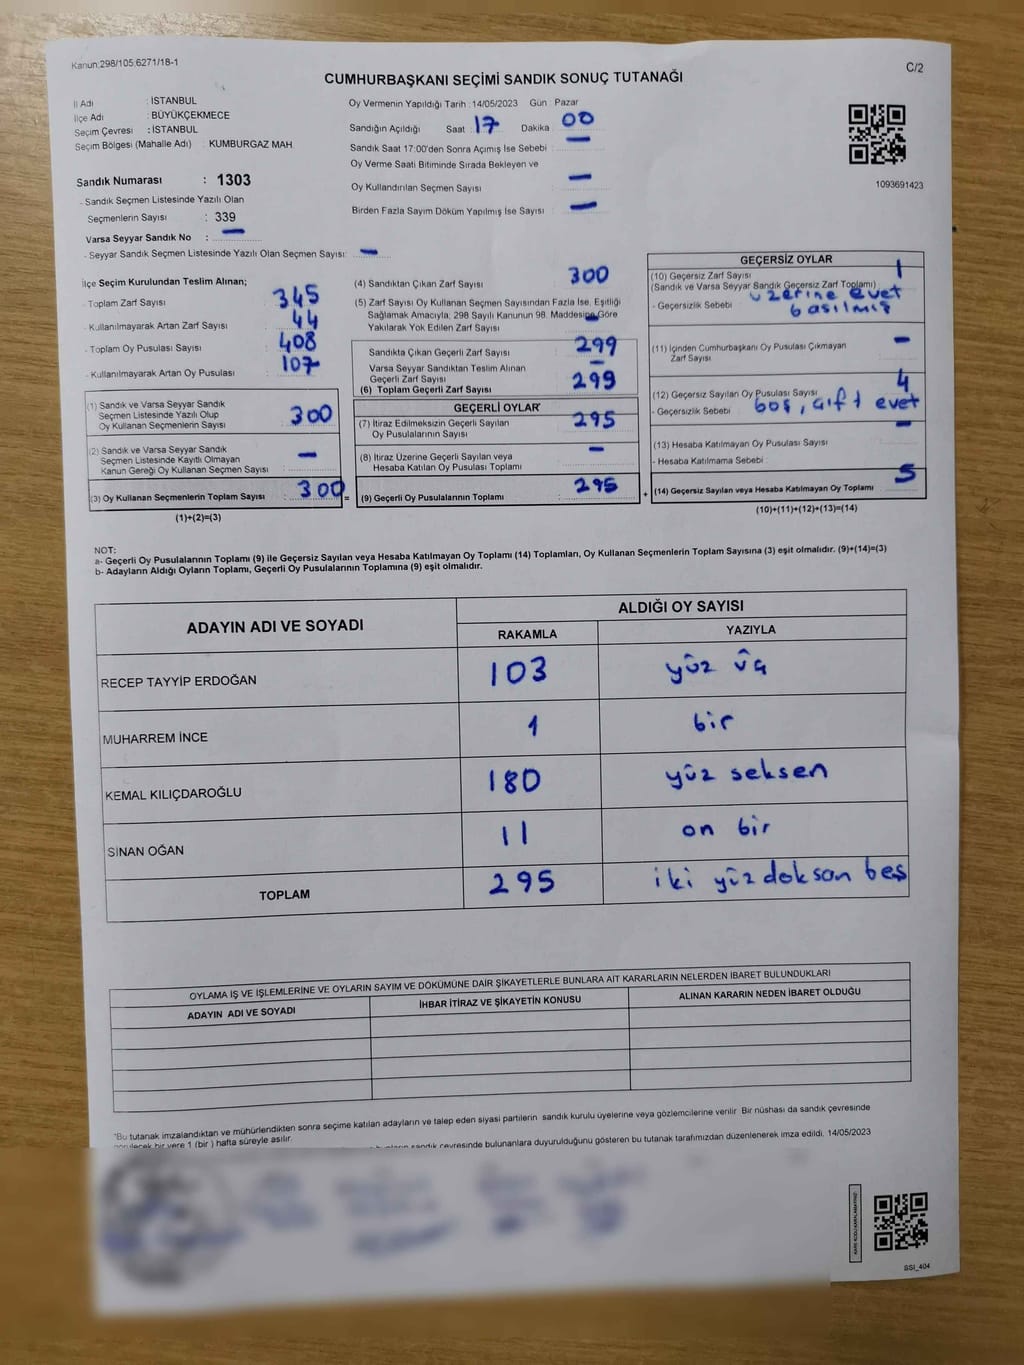 Kanun;298/105;6271/18-1
C/2
CUMHURBAŞKANI SEÇİMİ SANDIK SONUÇ TUTANAĞI
İl Adı : İSTANBUL
İlçe Adı : BÜYÜKÇEKMECE
Seçim Çevresi : İSTANBUL
Seçim Bölgesi (Mahalle Adı) : KUMBURGAZ MAH
Sandık Numarası : 1303
- Sandık Seçmen Listesinde Yazılı Olan
Seçmenlerin Sayısı : 339
Varsa Seyyar Sandık No : -
- Seyyar Sandık Seçmen Listesinde Yazılı Olan Seçmen Sayısı: -
Oy Vermenin Yapıldığı Tarih : 14/05/2023 Gün Pazar
Sandığın Açıldığı Saat : 17 Dakika 00
Sandık Saat 17:00'den Sonra Açımış İse Sebebi : -
Oy Verme Saati Bitiminde Sırada Bekleyen ve
Oy Kullandırılan Seçmen Sayısı -
Birden Fazla Sayım Döküm Yapılmış İse Sayısı : -
1093691423
İlçe Seçim Kurulundan Teslim Alınan;
- Toplam Zarf Sayısı 345
- Kullanılmayarak Artan Zarf Sayısı 44
- Toplam Oy Pusulası Sayısı 408
- Kullanılmayarak Artan Oy Pusulası 107
(1) Sandık ve Varsa Seyyar Sandık
Seçmen Listesinde Yazılı Olup
Oy Kullanan Seçmenlerin Sayısı 300
(2) Sandık ve Varsa Seyyar Sandık
Seçmen Listesinde Kayıtlı Olmayan
Kanun Gereği Oy Kullanan Seçmen Sayısı -
(3) Oy Kullanan Seçmenlerin Toplam Sayısı 300 =
(1)+(2)=(3)
(4) Sandıktan Çıkan Zarf Sayısı 300
(5) Zarf Sayısı Oy Kullanan Seçmen Sayısından Fazla İse, Eşitliği
Sağlamak Amacıyla; 298 Sayılı Kanunun 98. Maddesine Göre
Yakılarak Yok Edilen Zarf Sayısı -
Sandıkta Çıkan Geçerli Zarf Sayısı 299
Varsa Seyyar Sandıktan Teslim Alınan
Geçerli Zarf Sayısı -
(6) Toplam Geçerli Zarf Sayısı 299
GEÇERLİ OYLAR
(7) İtiraz Edilmeksizin Geçerli Sayılan
Oy Pusulalarının Sayısı 295
(8) İtiraz Üzerine Geçerli Sayılan veya
Hesaba Katılan Oy Pusulası Toplamı -
(9) Geçerli Oy Pusulalarının Toplamı 295 +
GEÇERSİZ OYLAR
(10) Geçersiz Zarf Sayısı 1
(Sandık ve Varsa Seyyar Sandık Geçersiz Zarf Toplamı)
- Geçersizlik Sebebi üzerine evet
basılmış
(11) İçinden Cumhurbaşkanı Oy Pusulası Çıkmayan
Zarf Sayısı -
(12) Geçersiz Sayılan Oy Pusulası Sayısı 4
- Geçersizlik Sebebi boş, çift evet
(13) Hesaba Katılmayan Oy Pusulası Sayısı -
- Hesaba Katılmama Sebebi :
(14) Geçersiz Sayılan veya Hesaba Katılmayan Oy Toplamı 5
(10)+(11)+(12)+(13)=(14)
NOT:
a- Geçerli Oy Pusulalarının Toplamı (9) ile Geçersiz Sayılan veya Hesaba Katılmayan Oy Toplamı (14) Toplamları, Oy Kullanan Seçmenlerin Toplam Sayısına (3) eşit olmalıdır. (9)+(14)=(3)
b- Adayların Aldığı Oyların Toplamı, Geçerli Oy Pusulalarının Toplamına (9) eşit olmalıdır.
ADAYIN ADI VE SOYADI
ALDIĞI OY SAYISI
RAKAMLA YAZIYLA
RECEP TAYYİP ERDOĞAN 103 yüz üç
MUHARREM İNCE 1 bir
KEMAL KILIÇDAROĞLU 180 yüz seksen
SİNAN OĞAN 11 on bir
TOPLAM 295 iki yüz doksan beş
OYLAMA İŞ VE İŞLEMLERİNE VE OYLARIN SAYIM VE DÖKÜMÜNE DAİR ŞİKAYETLERLE BUNLARA AİT KARARLARIN NELERDEN İBARET BULUNDUKLARI
ADAYIN ADI VE SOYADI İHBAR İTİRAZ VE ŞİKAYETİN KONUSU ALINAN KARARIN NEDEN İBARET OLDUĞU
*Bu tutanak imzalandıktan ve mühürlendikten sonra seçime katılan adayların ve talep eden siyasi partilerin sandık kurulu üyelerine veya gözlemcilerine verilir. Bir nüshası da sandık çevresinde
görülecek bir yere 1 (bir ) hafta süreyle asılır.
sandık çevresinde bulunanlara duyurulduğunu gösteren bu tutanak tarafımızdan düzenlenerek imza edildi. 14/05/2023
SSI_404